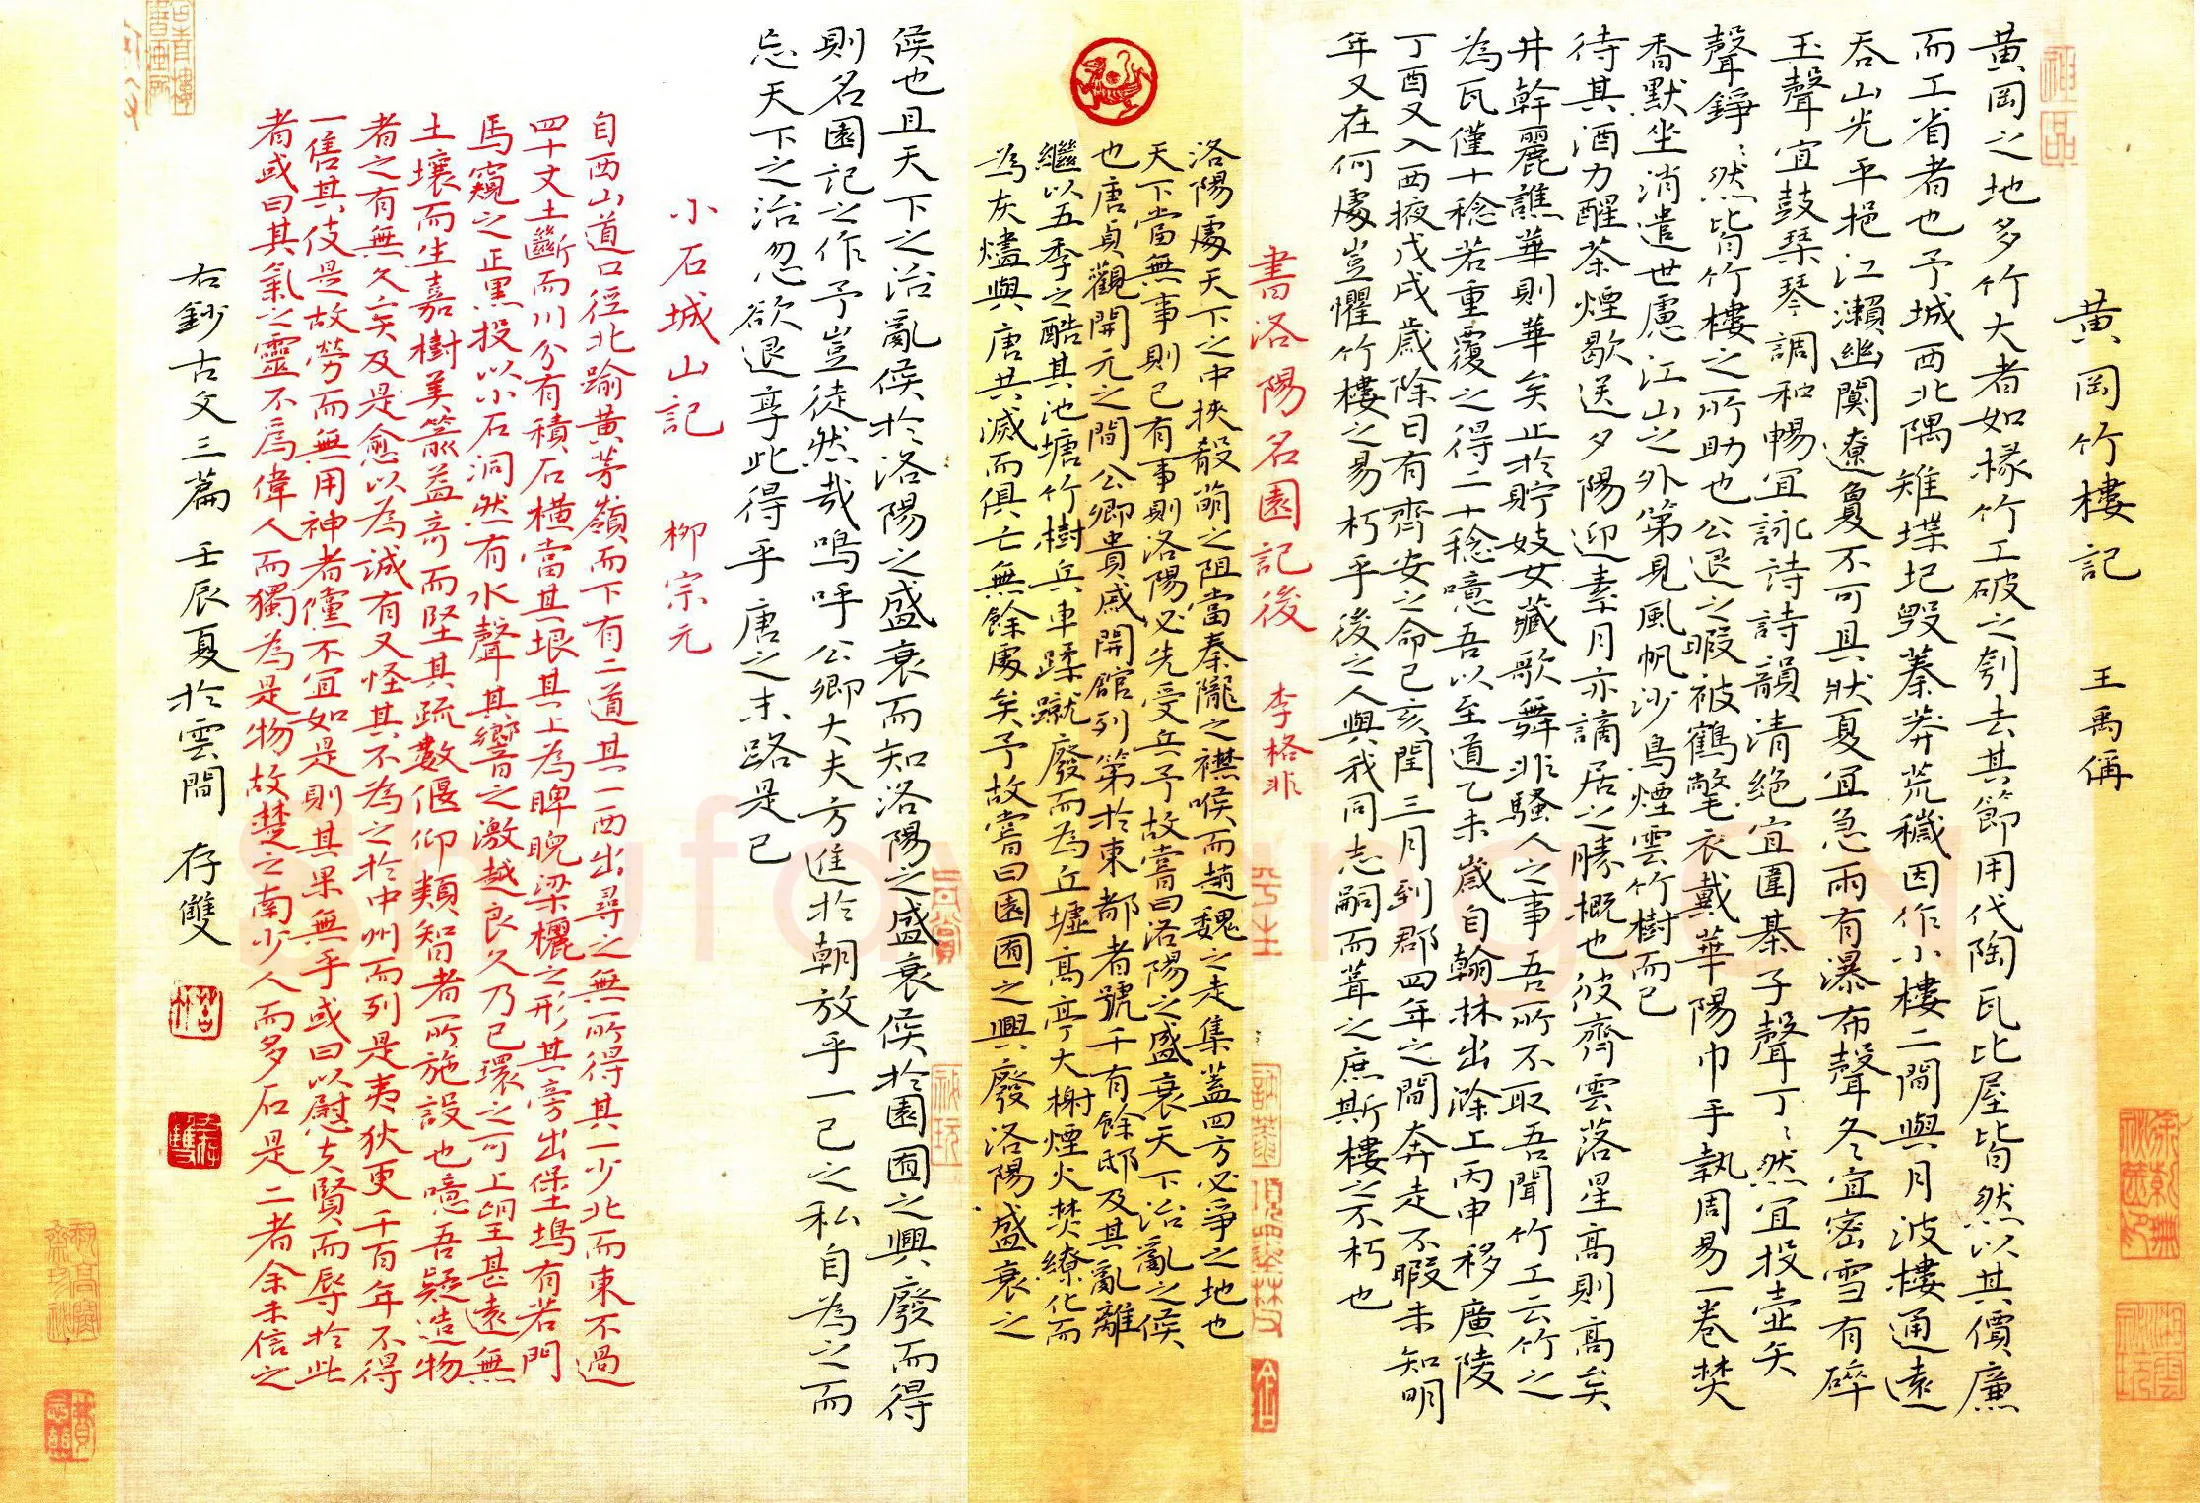 黃岡竹樓記 王禹偁
黃岡之地多竹大者如椽竹工破之刳去其節用代陶瓦比屋皆然以其價廉
而工省者也予城西北隅雉堞圮毀蓁莽荒穢因作小樓二間與月波樓通遠
吞山光平挹江瀨幽闃遼敻不可具狀夏宜急雨有瀑布聲冬宜密雪有碎
玉聲宜鼓琴琴調和暢宜詠詩詩韻清絕宜圍棊子聲丁丶然宜投壺矢
聲錚丶然皆竹樓之所助也公退之暇被鶴氅衣戴華陽巾手執周易一卷焚
香默坐消遣世慮江山之外第見風帆沙鳥煙雲竹樹而已
待其酒力醒茶煙歇送夕陽迎素月亦謫居之勝概也彼齊雲落星高則高矣
井幹麗譙華則華矣止於貯妓女藏歌舞非騷人之事吾所不取吾聞竹工云竹之
為瓦僅十稔若重覆之得二十稔噫吾以至道乙未歲自翰林出滁上丙申移廣陵
丁酉又入西掖戊戌歲除日有齊安之命己亥閏三月到郡四年之間奔走不暇未知明
年又在何處豈懼竹樓之易朽乎後之人與我同志嗣而葺之庶斯樓之不朽也
書洛陽名園記後 李格非
洛陽處天下之中挾殽黽之阻當秦隴之襟喉而趙魏之走集蓋四方必爭之地也
天下當無事則已有事則洛陽必先受兵予故嘗曰洛陽之盛衰天下治亂之候
也唐貞觀開元之間公卿貴戚開館列第於東都者號千有餘邸及其亂離
繼以五季之酷其池塘竹樹兵車蹂蹴廢而為丘墟高亭大榭煙火焚燎化而
為灰燼與唐共滅而俱亡無餘處矣予故嘗曰園囿之興廢洛陽盛衰之
候也且天下之治亂候於洛陽之盛衰而知洛陽之盛衰候於園囿之興廢而得
則名園記之作予豈徒然哉嗚呼公卿大夫方進於朝放乎一己之私自為之而
忘天下之治忽欲退享此得乎唐之末路是已
小石城山記 柳宗元
自西山道口徑北踰黃茅嶺而下有二道其一西出尋之無所得其一少北而東不過
四十丈土斷而川分有積石橫當其垠其上為睥睨梁欐之形其旁出堡塢有若門
焉窺之正黑投以小石洞然有水聲其響之激越良久乃已環之可上望甚遠無
土壤而生嘉樹美箭益奇而堅其疏數偃仰類智者所施設也噫吾疑造物
者之有無久矣及是愈以為誠有又怪其不為之於中州而列是夷狄更千百年不得
一售其伎是故勞而無用神者儻不宜如是則其果無乎或曰以慰夫賢而辱於此
者或曰其氣之靈不為偉人而獨為是物故楚之南少人而多石是二者余未信之
右鈔古文三篇 壬辰夏於雲間 存雙